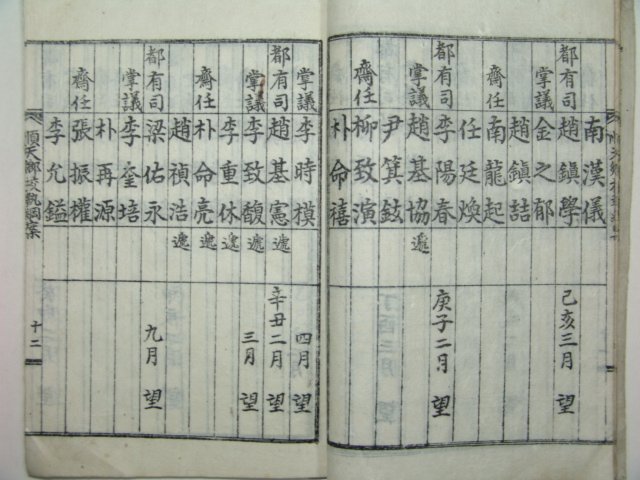 南漢儀
都有司 趙鎭學 己亥三月 望
掌議 金之郁
趙鎭喆
齋任 南龍起
任廷煥
都有司 李陽春 庚子二月 望
掌議 趙基協 遞
尹箕鉉
齋任 柳致演
朴命禧
掌議 李時模 四月 望
都有司 趙基憲 遞 辛丑二月 望
掌議 李致馥 遞 三月 望
李重休 遞
齋任 朴命亮
趙禎浩 遞
都有司 梁佑永 九月 望
掌議 李奎培
朴再源
齋任 張振權
李允鎰
順天鄕校執綱案 十二